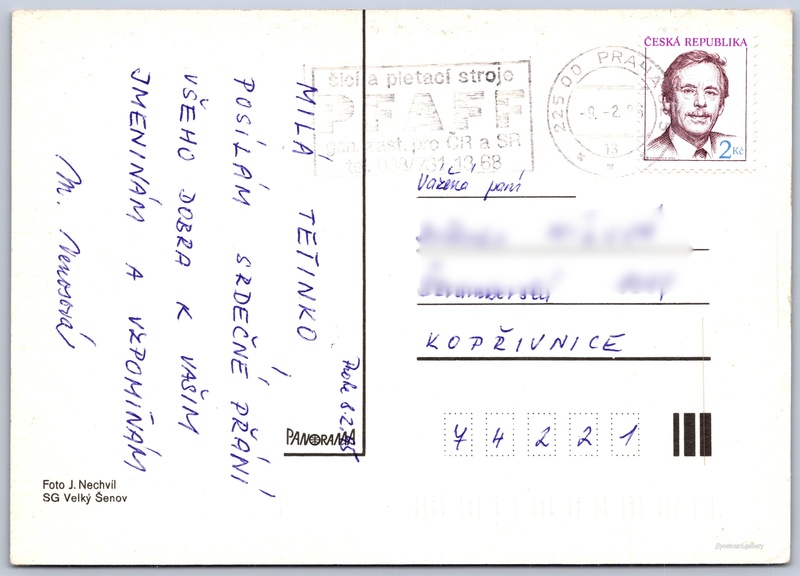 MILÁ TETINKO,
POSÍLÁM SRDEČNÉ PŘÁNÍ
VŠEHO DOBRA K VAŠIM
JMENINÁM A VZPOMÍNÁM
M.
8.2.
šicí a pletací stroje
PFAFF
gen. zast. pro ČR a SR
225 00 PRAHA
-9.-2.
13
ČESKÁ REPUBLIKA
2 Kč
Vážená paní
KOPŘIVNICE
74221
PANORAMA
Foto J. Nechvíl
SG Velký Šenov